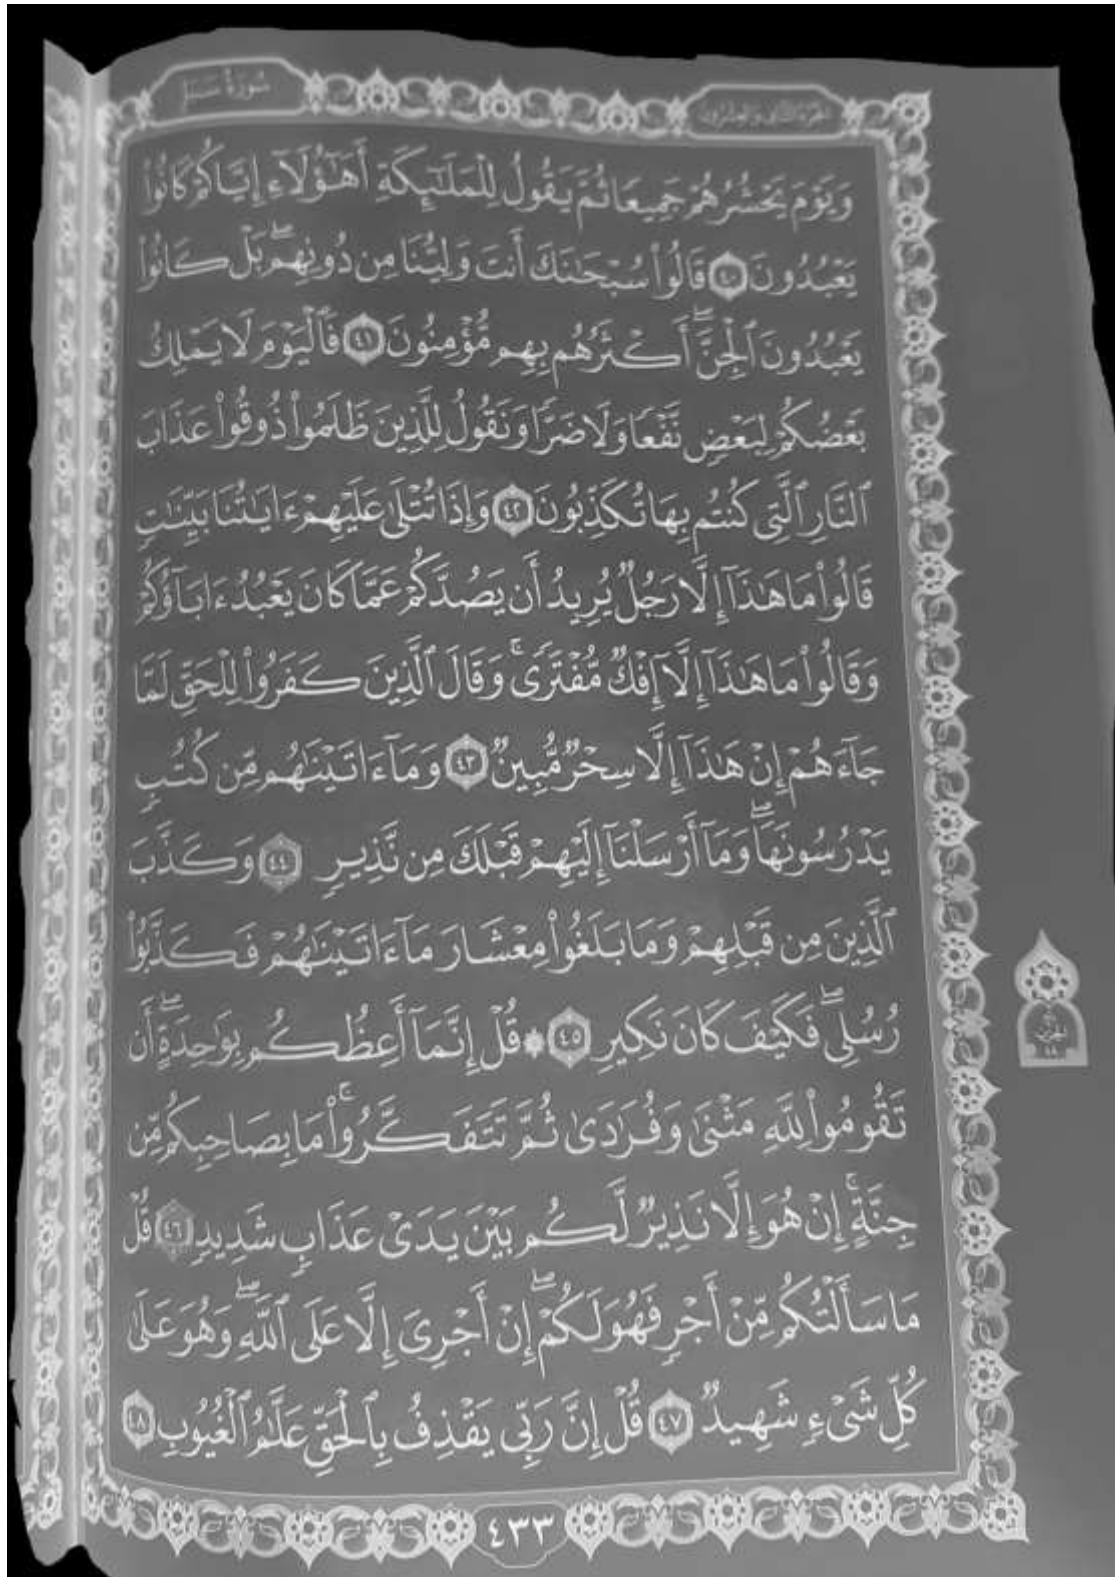 الجزء الثاني والعشرون
سورة سبإ
وَيَوْمَ يَحْشُرُهُمْ جَمِيعًا ثُمَّ يَقُولُ لِلْمَلَٰٓئِكَةِ أَهَٰٓؤُلَآءِ إِيَّاكُمْ كَانُوا۟
يَعْبُدُونَ ٤٠ قَالُوا۟ سُبْحَٰنَكَ أَنتَ وَلِيُّنَا مِن دُونِهِمۖ بَلْ كَانُوا۟
يَعْبُدُونَ ٱلْجِنَّۖ أَكْثَرُهُم بِهِم مُّؤْمِنُونَ ٤١ فَٱلْيَوْمَ لَا يَمْلِكُ
بَعْضُكُمْ لِبَعْضٍ نَّفْعًا وَلَا ضَرًّا وَنَقُولُ لِلَّذِينَ ظَلَمُوا۟ ذُوقُوا۟ عَذَابَ
ٱلنَّارِ ٱلَّتِى كُنتُم بِهَا تُكَذِّبُونَ ٤٢ وَإِذَا تُتْلَىٰ عَلَيْهِمْ ءَايَٰتُنَا بَيِّنَٰتٍ
قَالُوا۟ مَا هَٰذَآ إِلَّا رَجُلٌ يُرِيدُ أَن يَصُدَّكُمْ عَمَّا كَانَ يَعْبُدُ ءَابَآؤُكُمْ
وَقَالُوا۟ مَا هَٰذَآ إِلَّآ إِفْكٌ مُّفْتَرًىۚ وَقَالَ ٱلَّذِينَ كَفَرُوا۟ لِلْحَقِّ لَمَّا
جَآءَهُمْ إِنْ هَٰذَآ إِلَّا سِحْرٌ مُّبِينٌ ٤٣ وَمَآ ءَاتَيْنَٰهُم مِّن كُتُبٍ
يَدْرُسُونَهَاۖ وَمَآ أَرْسَلْنَآ إِلَيْهِمْ قَبْلَكَ مِن نَّذِيرٍ ٤٤ وَكَذَّبَ
ٱلَّذِينَ مِن قَبْلِهِمْ وَمَا بَلَغُوا۟ مِعْشَارَ مَآ ءَاتَيْنَٰهُمْ فَكَذَّبُوا۟
رُسُلِىۖ فَكَيْفَ كَانَ نَكِيرِ ٤٥ ۞ قُلْ إِنَّمَآ أَعِظُكُم بِوَٰحِدَةٍۖ أَن
تَقُومُوا۟ لِلَّهِ مَثْنَىٰ وَفُرَٰدَىٰ ثُمَّ تَتَفَكَّرُوا۟ۚ مَا بِصَاحِبِكُم مِّن
جِنَّةٍۚ إِنْ هُوَ إِلَّا نَذِيرٌ لَّكُم بَيْنَ يَدَىْ عَذَابٍ شَدِيدٍ ٤٦ قُلْ
مَا سَأَلْتُكُم مِّنْ أَجْرٍ فَهُوَ لَكُمْۖ إِنْ أَجْرِىَ إِلَّا عَلَى ٱللَّهِۖ وَهُوَ عَلَىٰ
كُلِّ شَىْءٍ شَهِيدٌ ٤٧ قُلْ إِنَّ رَبِّى يَقْذِفُ بِٱلْحَقِّ عَلَّٰمُ ٱلْغُيُوبِ ٤٨
٤٣٣